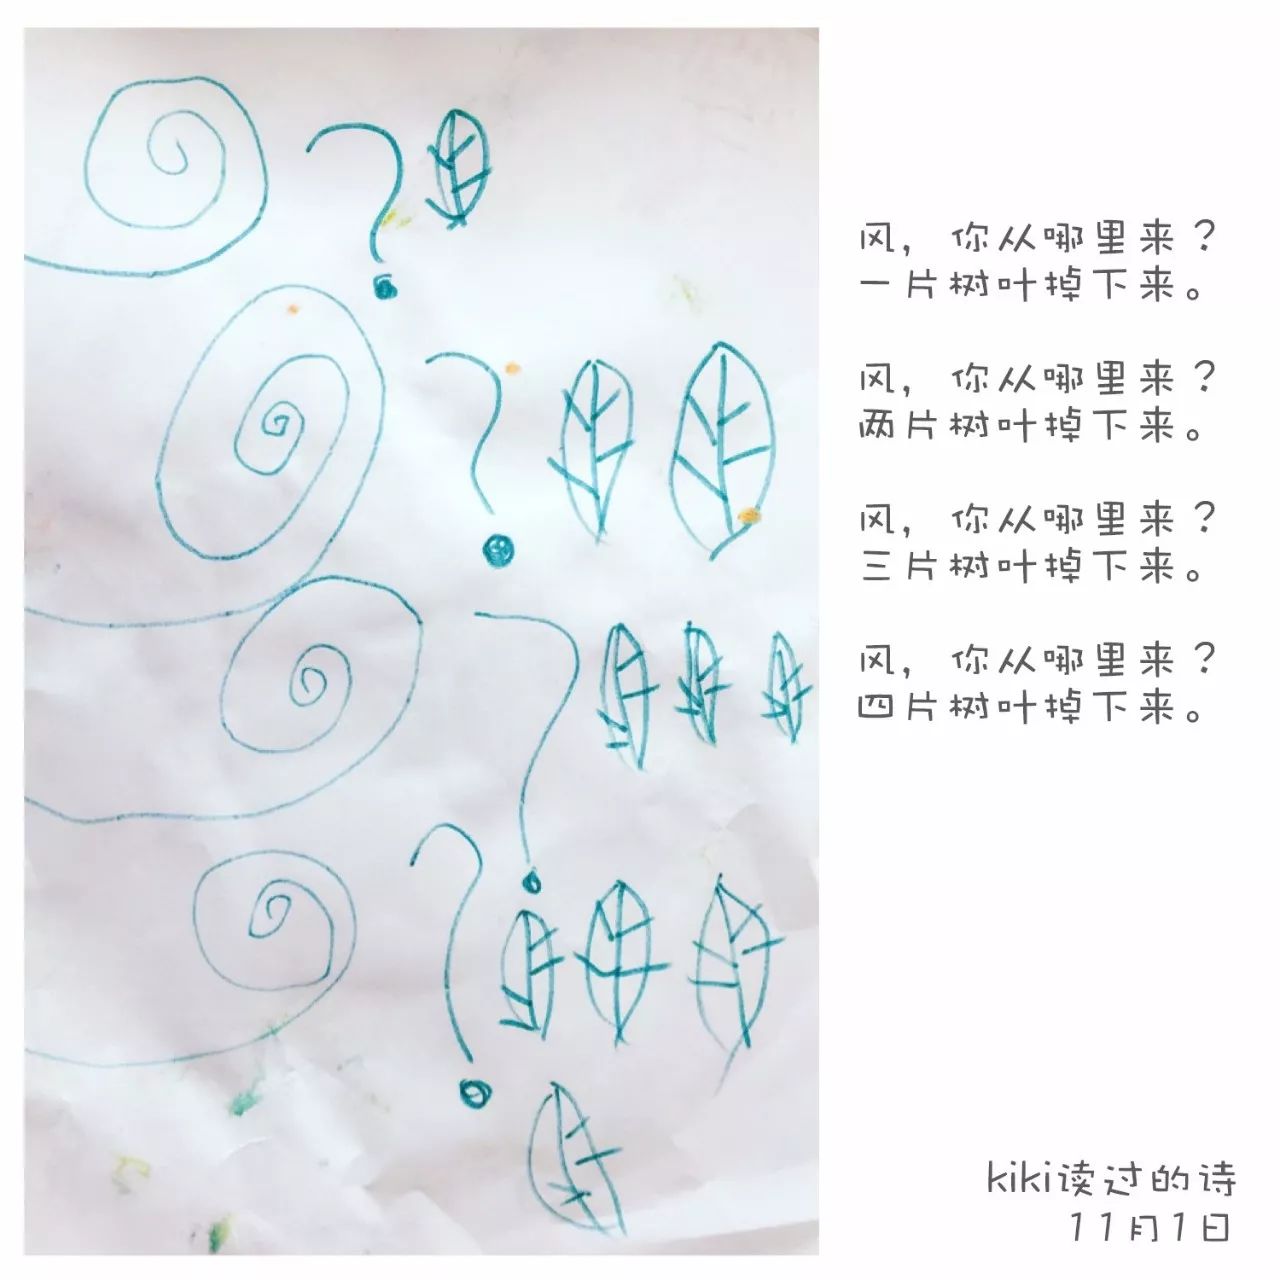 风，你从哪里来？
一片树叶掉下来。
风，你从哪里来？
两片树叶掉下来。
风，你从哪里来？
三片树叶掉下来。
风，你从哪里来？
四片树叶掉下来。
kiki读过的诗
11月1日